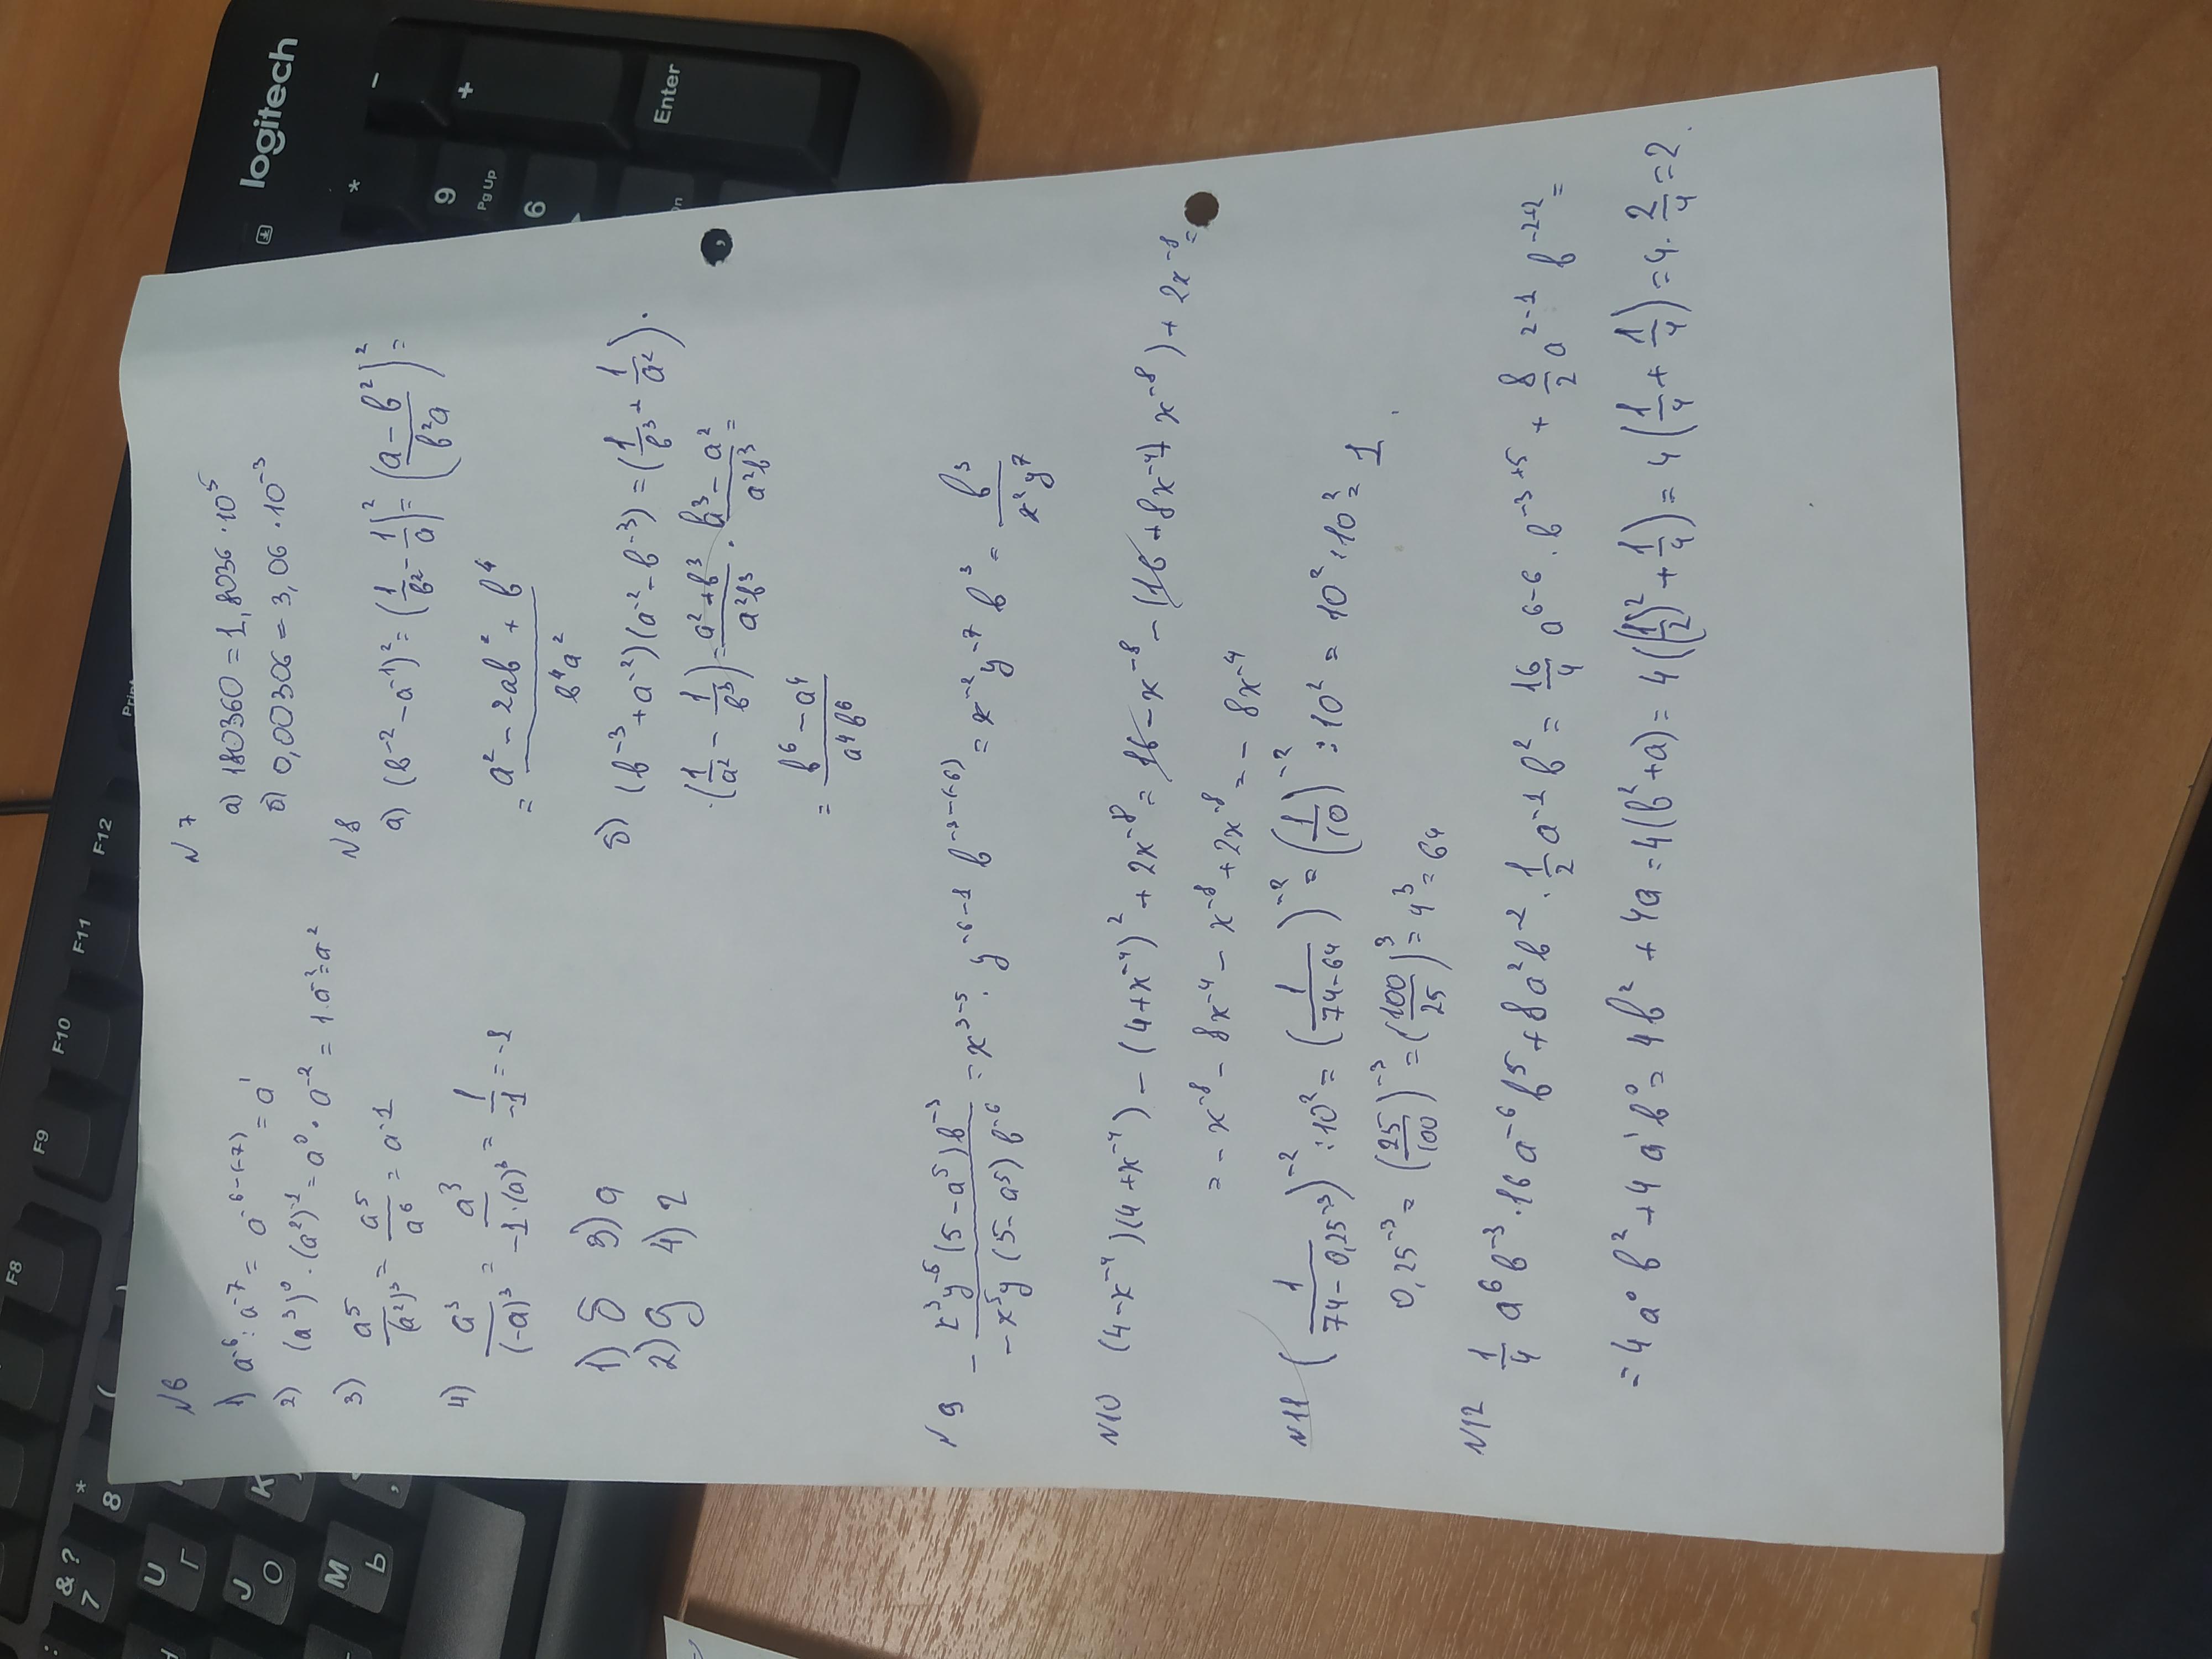 N6
1) a⁻⁶ : a⁻⁷ = a⁻⁶⁻⁽⁻⁷⁾ = a¹
2) (a³)⁰ · (a²)⁻¹ = a⁰ · a⁻² = 1 · a⁻² = a²
3) a⁵/(a²)³ = a⁵/a⁶ = a⁻¹
4) a³/(-a)³ = a³/(-1·(a)³) = 1/-1 = -1
1) б 3) а
2) g 4) г
N7
а) 180360 = 1,8036 · 10⁵
б) 0,00306 = 3,06 · 10⁻³
N8
а) (b⁻² - a⁻¹)² = (1/b² - 1/a)² = ((a - b²)/(b²a))² =
= (a² - 2ab² + b⁴)/(b⁴a²)
б) (b⁻³ + a⁻²)(a⁻² - b⁻³) = (1/b³ + 1/a²) ·
· (1/a² - 1/b³) = (a² + b³)/(a²b³) · (b³ - a²)/(a²b³) =
= (b⁶ - a⁴)/(a⁴b⁶)
N9 - (x³y⁻⁶(5 - a⁵)b⁻³)/(-x⁵y(5 - a⁵)b⁻⁶) = x³⁻⁵ · y⁻⁶⁻¹ b⁻³⁻⁽⁻⁶⁾ = x⁻² y⁻⁷ b³ = b³/(x²y⁷)
N10 (4 - x⁻⁴)(4 + x⁻⁴) - (4 + x⁻⁴)² + 2x⁻⁸ = 16 - x⁻⁸ - (16 + 8x⁻⁴ + x⁻⁸) + 2x⁻⁸ =
= - x⁻⁸ - 8x⁻⁴ - x⁻⁸ + 2x⁻⁸ = - 8x⁻⁴
N11 (1/(74 - 0,25⁻³))⁻² : 10² = (1/(74 - 64))⁻² = (1/10)⁻² : 10² = 10² : 10² = 1
0,25⁻³ = (25/100)⁻³ = (100/25)³ = 4³ = 64
N12 1/4 a⁶b⁻³ · 16a⁻⁶b⁵ + 8a²b⁻² · 1/2 a⁻¹b² = 16/4 a⁶⁻⁶ · b⁻³⁺⁵ + 8/2 a²⁻¹ b⁻²⁺² =
= 4a⁰b² + 4a¹b⁰ = 4b² + 4a = 4(b² + a) = 4((1/2)² + 1/4) = 4(1/4 + 1/4) = 4 · 2/4 = 2.
logitech
F8
F9
F10
F11
F12
Enter
9
Pg Up
6
+
-
*
8
&
?
7
U
Г
J
О
M
Ь
K